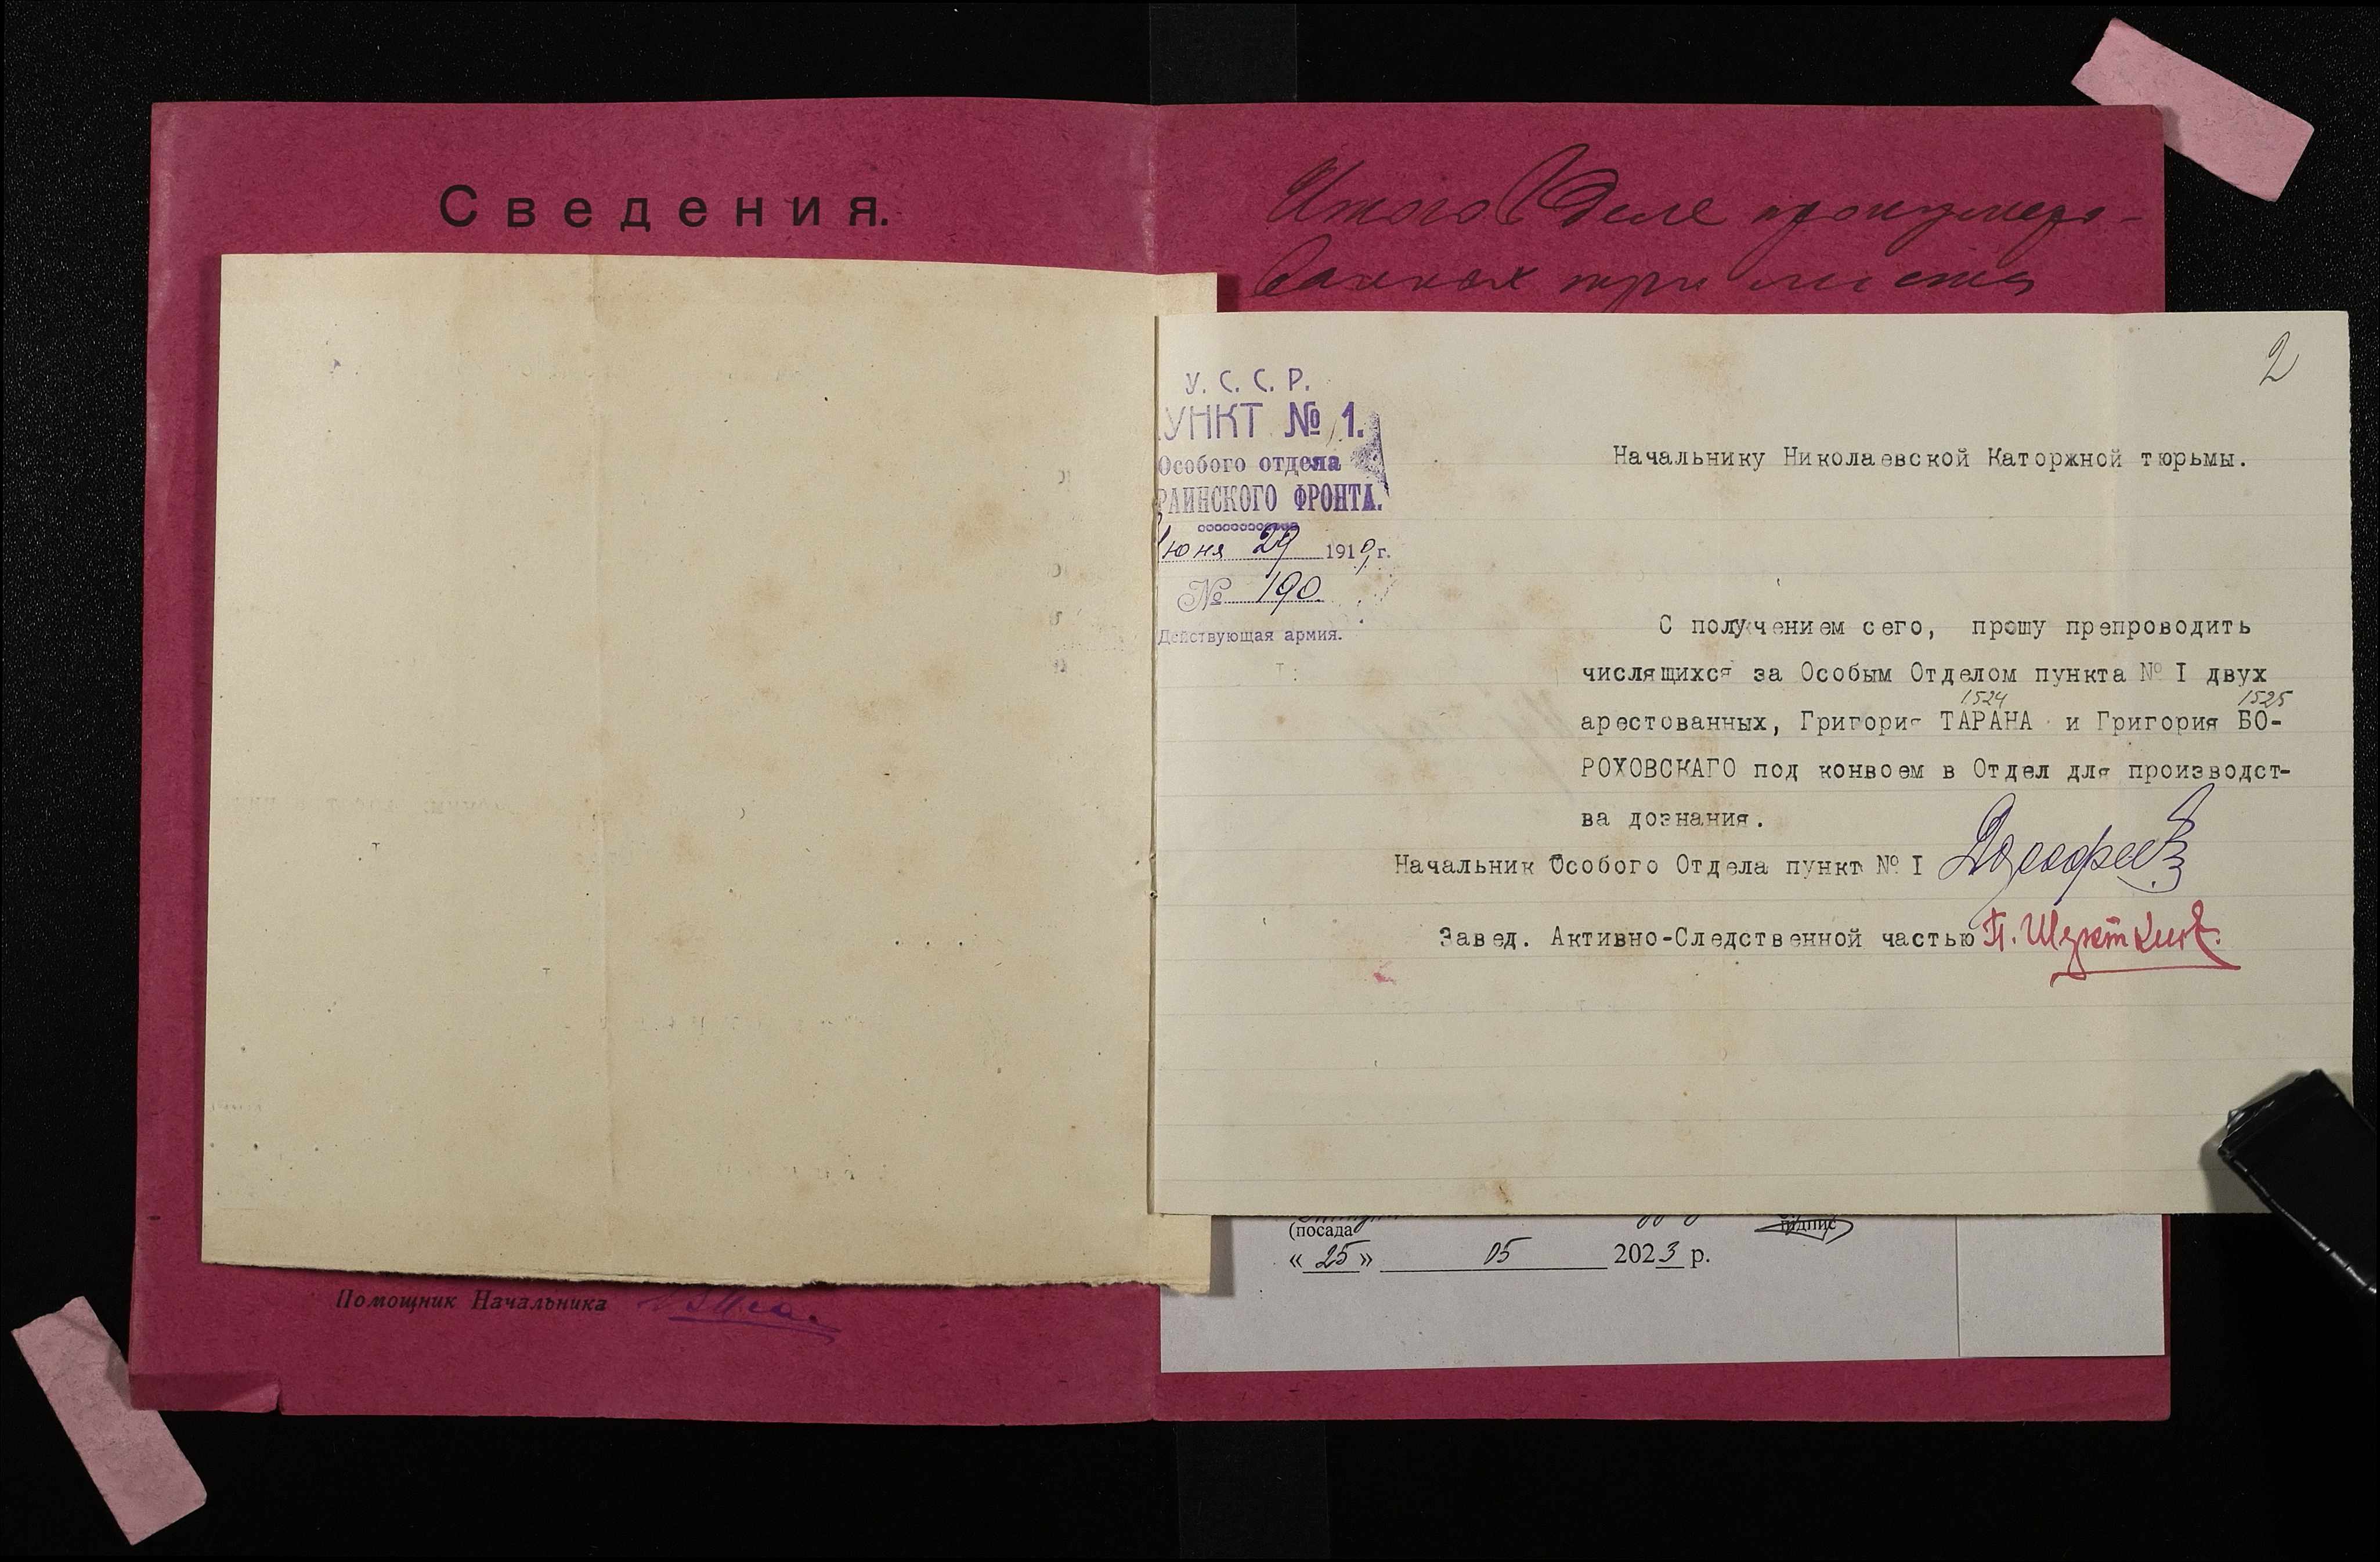 Сведения.
Итого в деле пронумеро-
ванных три листа
2
У. С. С. Р.
УНКТ № 1.
Особого отдела
РАИНСКОГО ФРОНТА.
Июня 29 1919 г.
№ 190
Действующая армия.
Начальнику Николаевской Каторжной тюрьмы.
С получением сего, прошу препроводить
числящихся за Особым Отделом пункта № I двух
1524 1525
арестованных, Григория ТАРАНА и Григория БО-
РОХОВСКАГО под конвоем в Отдел для производст-
ва дознания.
Начальник Особого Отдела пункт № I
Завед. Активно-Следственной частью П.
(посада
підпис
« 25 » 05 2023 р.
Помощник Начальника